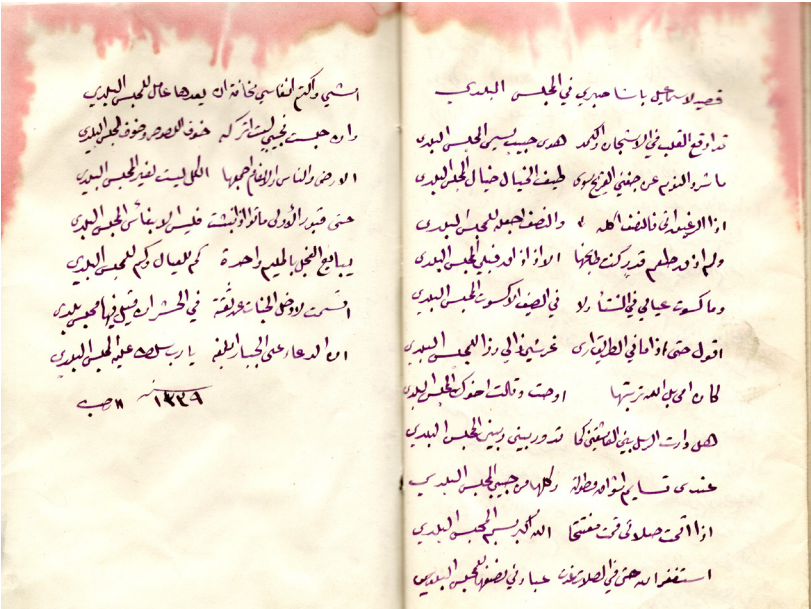 قصيد لاسماعيل باشا صبري في المجلس البلدي
قد اوقع القلب في الاشجان والكمد هوى حبيب يسمى المجلس البلدي
ما شرد النوم عن جفني القريح سوى طيف الخيال خيال المجلس البلدي
اذا الرغيف اتى فالنصف اكله والنصف اجعله للمجلس البلدي
ولم اذق طعم قدر كنت طابخها الا اذا ذاق قبلي المجلس البلدي
وما كسوت عيالي في الشتاء ولا في الصيف الا كسوت المجلس البلدي
اقول حتى اذا ما في الطريق ارى
كان امي بل الله تربتها اوصت وقالت اخوك المجلس البلدي
هل دارت الرسل بين العاشقين كما تدور بيني وبين المجلس البلدي
عندي وكلها من حبيبي المجلس البلدي
اذا اقمت صلاتي قمت مفتتحا الله اكبر بسم المجلس البلدي
استغفر الله حتى في الصلاة غدت عبادتي نصفها للمجلس البلدي
امشي واكتم انفاسي مخافة ان يعدها عامل للمجلس البلدي
وان جلست فجيبي لست اتركه خوف اللصوص وخوف المجلس البلدي
الارض والناس والانعام اجمعها الكل ليست لغير المجلس البلدي
حتى قبور الأولى ماتوا اذا نبشت فليس الا بفأس المجلس البلدي
يا بائع الفجل بالمليم واحدة كم للعيال وكم للمجلس البلدي
اقسمت لا دخل الجنات عن ثقة في الحشر ان قيل فيها مجلس بلدي
ان الدعاء على الجبار ابلغه يا رب سلط عليه المجلس البلدي
١٣٣٩